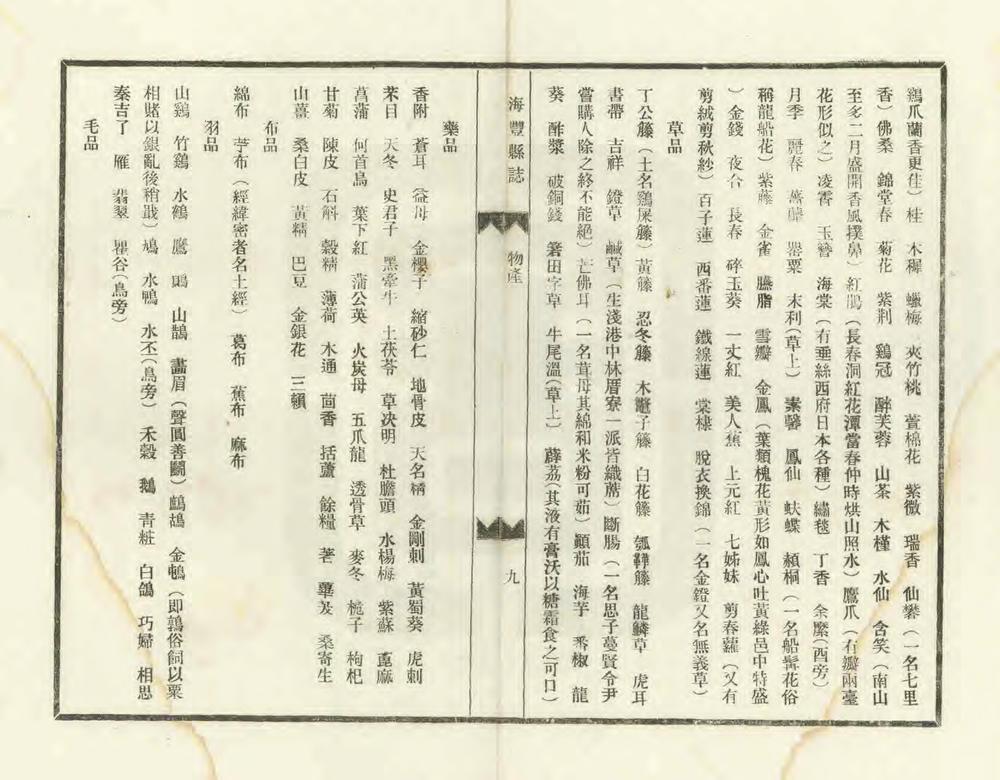 鷄爪蘭香更佳）桂 木樨 蠟梅 夾竹桃 萱棉花 紫微 瑞香 仙礬（一名七里
香）佛桑 錦堂春 菊花 紫荆 鷄冠 醉芙蓉 山茶 木槿 水仙 含笑（南山
至多二月盛開香風撲鼻）紅鵑（長春洞紅花潭當春仲時烘山照水）鷹爪（有瓣兩臺
花形似之）凌霄 玉簪 海棠（有垂絲西府日本各種）繡毬 丁香 余縻（酉旁）
月季 麗春 薔薇 罌粟 末利（草上） 素馨 鳳仙 蚨蝶 頳桐（一名船髯花俗
稱龍船花）紫藤 金雀 臙脂 雪瓣 金鳳（葉類槐花黃形如鳳心吐黃綠邑中特盛
）金錢 夜合 長春 碎玉葵 一丈紅 美人蕉 上元紅 七姊妹 剪春蘿（又有
剪絨剪秋紗）百子蓮 西番蓮 鐵線蓮 棠棣 脫衣換錦（一名金鐙又名無義草）
草品
丁公籐（土名鷄屎籐）黃籐 忍冬籐 木鼈子籐 白花籐 瓠鞾籐 龍鱗草 虎耳
書帶 吉祥 鐙草 鹹草（生淺港中林厝寮一派皆織蓆）斷腸（一名思子蔓賢令尹
嘗購人除之終不能絕）芒佛耳（一名茸母其綿和米粉可茹）顚茄 海芋 番椒 龍
葵 酢漿 破銅錢 箬田字草 牛尾溫（草上） 薜荔（其液有膏沃以糖霜食之可口）
海豐縣誌 物產 九
藥品
香附 蒼耳 益母 金櫻子 縮砂仁 地骨皮 天名精 金剛刺 黃蜀葵 虎刺
茱目 天冬 史君子 黑牽牛 土茯苓 草决明 杜膽頭 水楊梅 紫蘇 蓖麻
菖蒲 何首烏 葉下紅 蒲公英 火炭母 五爪龍 透骨草 麥冬 梔子 枸杞
甘菊 陳皮 石斛 穀精 薄荷 木通 茴香 括蔞 餘糧 芏 蓽茇 桑寄生
山薑 桑白皮 黃精 巴豆 金銀花 三賴
布品
綿布 苧布（經緯密者名土經） 葛布 蕉布 麻布
羽品
山鷄 竹鷄 水鶴 鷹 鴟 山鵲 畵眉（聲圓善鬭）鷓鴣 金鵪（即鶉俗飼以粟
相賭以銀亂後稍戢）鳩 水鴨 水丕（鳥旁） 禾穀 鵝 青粧 白鴿 巧婦 相思
秦吉了 雁 翡翠 瞿谷（鳥旁）
毛品